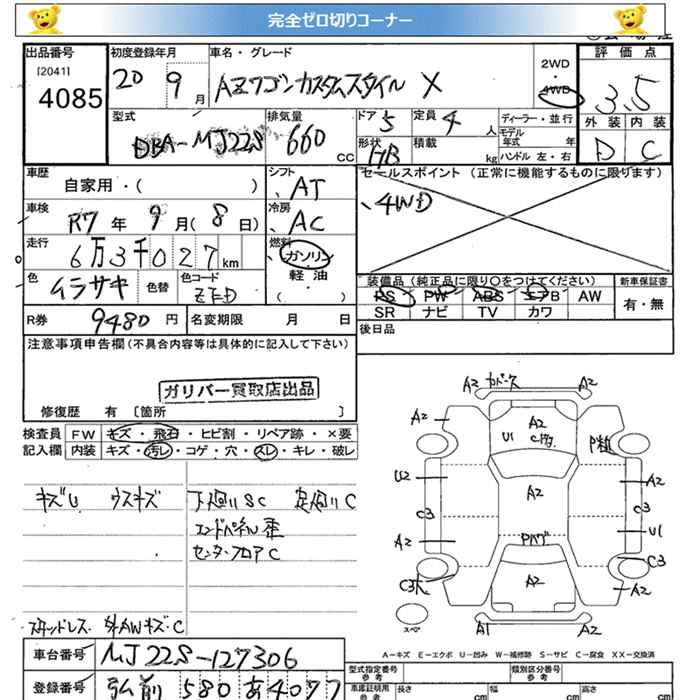 完全ゼロ切りコーナー
出品番号 初度登録年月 車名・グレード 2WD 評価点
[2041] 4085 20 9月 AZワゴンカスタムスタイル X 4WD 3.5
型式 排気量 ドア 定員 ディーラー・並行 外装 内装
DBA-MJ22S 660 CC 5 4 人 モデル年式 年 D C
形状 積載 kg ハンドル 左・右
HB
車歴 自家用・( ) シフト AT セールスポイント (正常に機能するものに限ります)
、4WD
車検 R7 年 9 月 ( 8 日) 冷房 AC
走行 6万3千027 km 燃料 ガソリン
軽油
( )
色 ムラサキ 色替 色コード ZFD
装備品 (純正品に限り○をつけてください) 新車保証書
PS PW ABS エアB AW 有・無
SR ナビ TV カワ
R券 9480 円 名変期限 月 日 後日品
注意事項申告欄 (不具合内容等は具体的に記入して下さい)
ガリバー買取店出品
修復歴 有 〔箇所 〕
検査員 FW キズ・飛石・ヒビ割・リペア跡・×要
記入欄 内装 キズ・汚レ・コゲ・穴・スレ・キレ・破レ
キズU ウスキズ 下廻りSC 足廻りC
エンドパネル歪
センターフロアC
スタッドレス 外AWキズ・C
A2 カバース A2
A2 A2 P粒
U1 C
U2 A2 A2
C3 C3
A2 Pハゲ U1
C3
C3 A2 A2
スペア A1 A2
A―キズ E―エクボ U―凹み W―補修跡 S―サビ C―腐食 XX―交換済
車台番号 MJ22S-127306
登録番号 弘前 580 あ4077
型式指定番号 参考 類別区分番号 参考
車庫証明用 参考 長さ cm 幅 cm 高さ cm